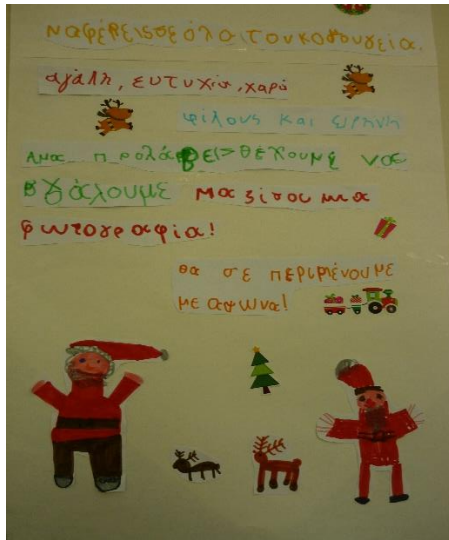 να φέρεις σε όλο τον κόσμο υγεία,
αγάπη, ευτυχία, χαρά
φίλους και ειρήνη
Άμα προλάβεις θέλουμε να
βγάλουμε μαζί σου μια
φωτογραφία!
θα σε περιμένουμε
με αγωνία!